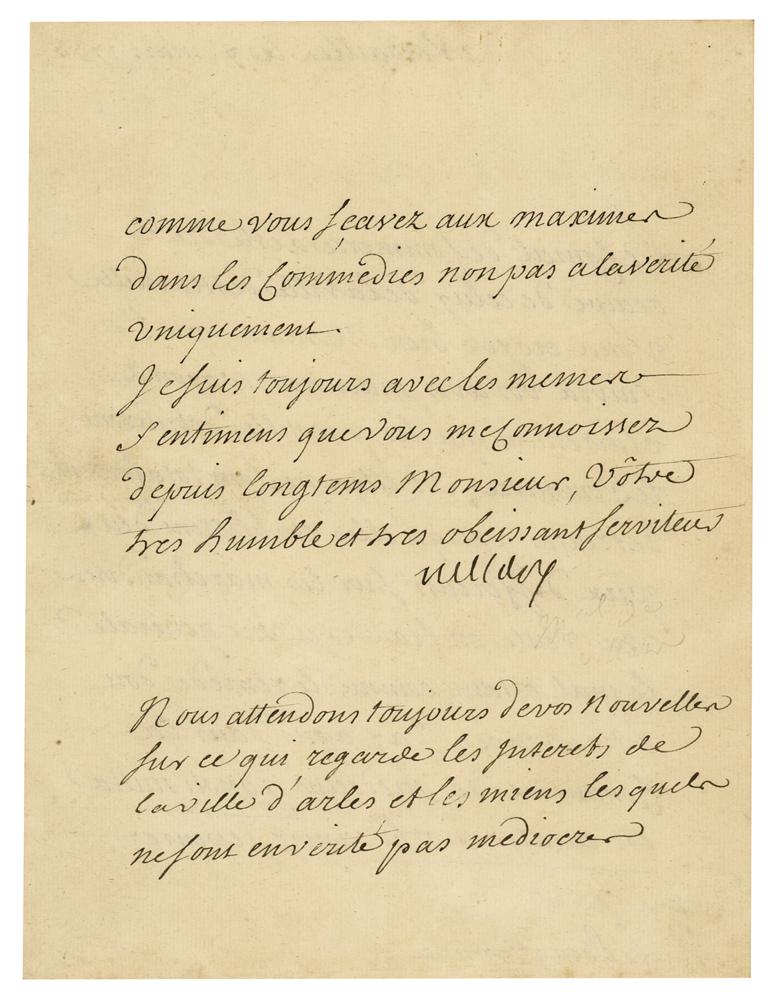 comme vous sçavez aux maximes
dans les Commedies non pas a la verité
vniquement.
Je suis toujours avec les memes
Sentimens que vous me Connoissez
depuis longtems Monsieur, Vôtre
tres humble et tres obeissant serviteur
Nous attendons toujours de vos Nouvelles
sur ce qui regarde les Interets de
la ville d'arles et les miens lesquels
ne sont en verité pas mediocres